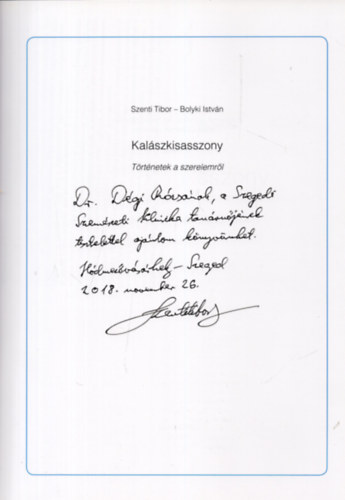 Szenti Tibor – Bolyki István
Kalászkisasszony
Történetek a szerelemről
Dr. Dégi Rózsának, a Szegedi
Szemészeti Klinika tanárnőjének
tisztelettel ajánlom könyvünket.
Hódmezővásárhely – Szeged
2018. november 26.
Szenti Tibor